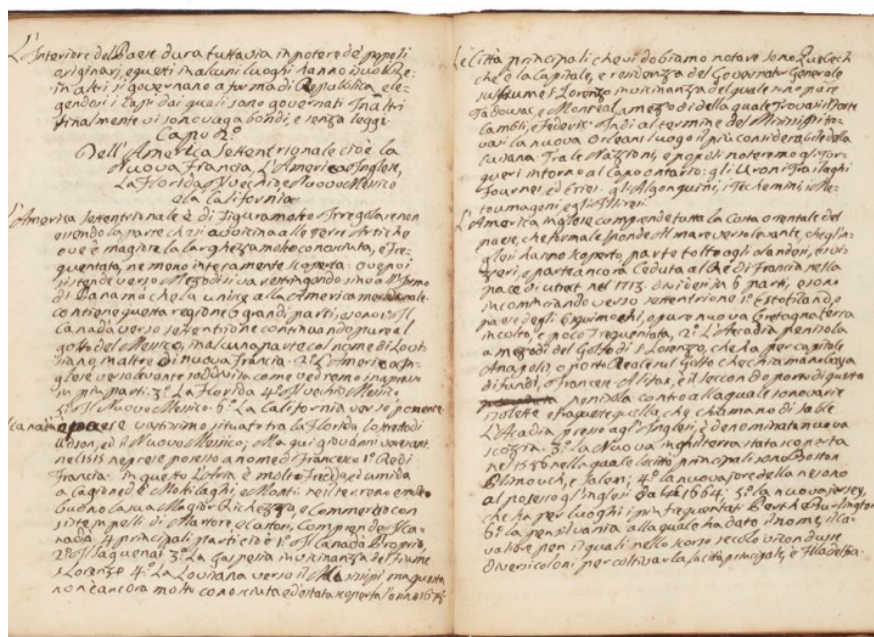 L'Interiore del Paese dura tuttavia in potere de popoli
originarj, e questi in alcuni luoghi hanno i suoi Re:
in altri si governano a forma di Republica, ele-
gendovi i Capi dai quali sono governati. In altri
finalmente vi sono vagabondi, e senza leggi.
Capo 2.º
Dell'America Settentrionale cioè la
Nuova Francia, L'America Inglese,
La Florida, il Vecchio, e Nuovo Messico
e la California.
L'America Settentrionale è di Figura molto Irregolare non
essendo la parte che si avvicina alle Terre Artiche
ove è magiore la larghezza molto conosciuta, e fre-
quentata, ne meno interamente scoperta. Ove poi
si stende verso Mezodi si va restringendo sino all'Istmo
di Panama che la unisce alla America meridionale
contiene questa regione 6 grandi parti, e sono 1.º Il
Canada verso settentrione continuando pure al
golfo del Messico, in alcuna parte col nome di Loui-
siana, in altre di nuova Francia. 2.º L'America In-
glese verso levante suddivisa come vedremo in apresso
in più parti. 3.º La Florida 4.º Il Vechio Messico,
5.º Il Nuovo Messico. 6.º La California verso ponente.
Il Canada è paese vastissimo, situato tra la Florida, lo stretto di
Udson, ed il Nuovo Messico;
nel 1525 ne prese possesso a nome di Francesco 1.º Re di
Francia. In questo L'Aria è molto Fredda, ed umida
a cagione de Molti laghi, e Monti: ne il terreno è molto
buono la sua Magior Richezza, e Commercio con
siste in pelli di Martore, e Castori, Comprende il Ca-
nada 4 principali parti cioè 1.º Il Canada Proprio,
2.º Il Saguenai 3.º La Gaspesia in vicinanza del Fiume
S Lorenzo 4.º La Louisiana verso il Mississipi ma questa
non è ancora molto conosciuta ed è stata scoperta l'anno 1678
Le Città principali che vi dobiamo notare sono Quebech
che è la Capitale, e residenza del Governator Generale
sul fiume S Lorenzo in vicinanza del quale sono pure
Tadousac, e Montreal, a mezo di della quale trovasi il Forte
Indi al termine del Mississipi tro-
vasi la nuova Orleans luogo il più considerabile della
Luisiana. Tra le Nazzioni, e popoli noteremo gl'Iro-
queri intorno al Capo Ontario: gli Uroni Tra i laghi
ed Eries: gli Algonquini, i
e gli Illinesi.
L'America inglese comprende tutta la Costa orientale del
paese, che forma le sponde al mare verso levante, che gl'in-
glesi hanno scoperto, parte tolto agli olandesi,
e parte ancora Ceduta al Re di Francia nella
pace di utrect nel 1713. dividesi in 6 parti, e sono
incomminciando verso settentrione 1.º Estotiland, o
paese degli Esquimochi, o pure nuova Bretagna terra
incolto, e poco Frequentata, 2.º L'Arcadia penisola
a mezodi del Golfo di S Lorenzo, che ha per capitale
Anapolis, o porto Reale sul Golfo che chiaman baya
di fundi, è il seccondo porto di questa
penisola contro alla quale sono varie
isolette e fra queste quella, che chiamano di Sable
L'Acadia presso agli Inglesi, è denominata nuova
scozia. 3.º La Nuova inghilterra stata scoperta
nel 1556 nella quale le città principali sono Boston
Plimouch, e Salem; 4.º la nuova jore della ne sono
al possesso gl'inglesi dal 1664: 5.º la nuova jarsey,
che ha per luoghi i più frequentati Berth e Burlington
6.º la pensilvania alla quale ha dato il nome, il ca-
valier pen il quale nello scorso secolo vi condusse
diversi coloni per coltivar la, la città principale, è Filadelfia.